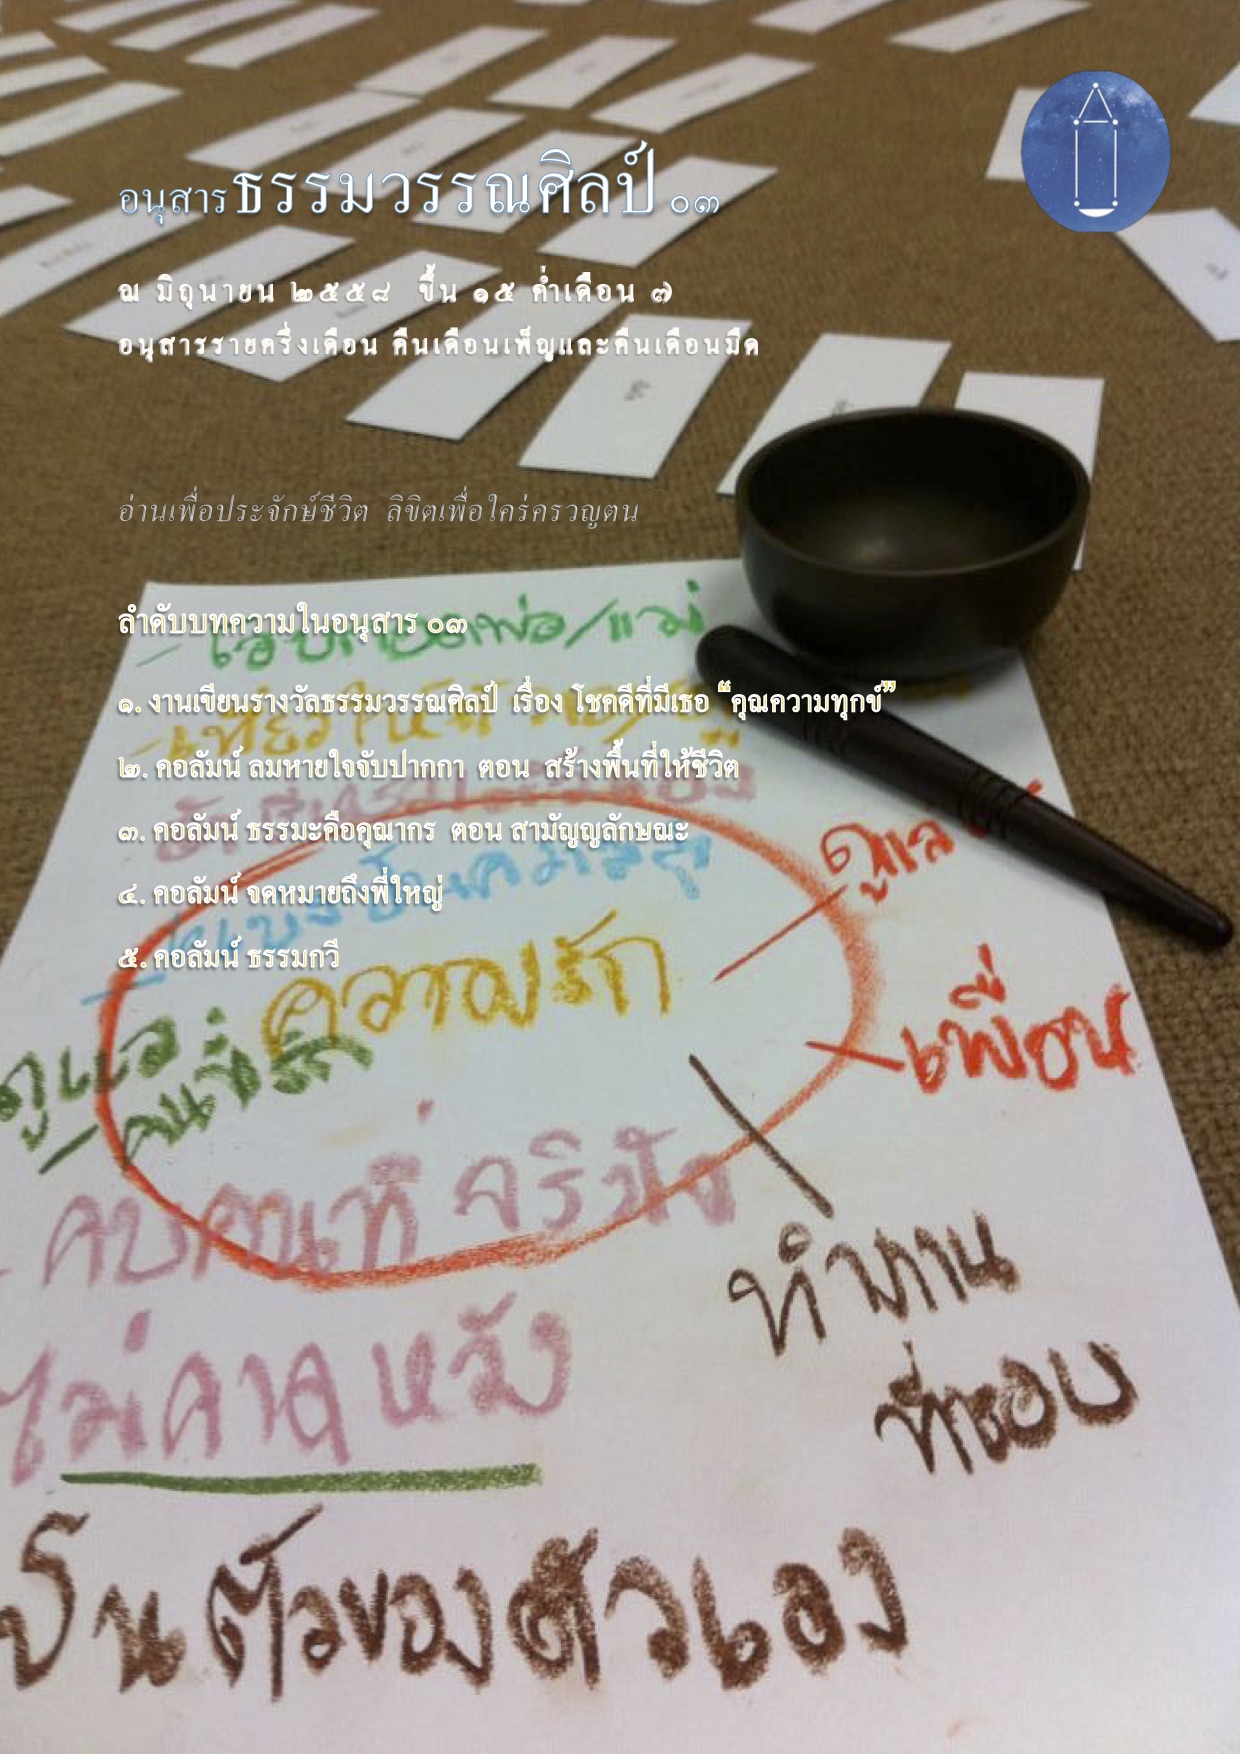 อนุสารธรรมวรรณศิลป์ ๐๓
ณ มิถุนายน ๒๕๕๘ ขึ้น ๑๕ ค่ำเดือน ๗
อนุสารรายครึ่งเดือน คืนเดือนเพ็ญและคืนเดือนมืด
อ่านเพื่อประจักษ์ชีวิต ลิขิตเพื่อใคร่ครวญตน
ลำดับบทความในอนุสาร ๐๓
๑. งานเขียนรางวัลธรรมวรรณศิลป์ เรื่อง โชคดีที่มีเธอ “คุณความทุกข์”
๒. คอลัมน์ ลมหายใจจับปากกา ตอน สร้างพื้นที่ให้ชีวิต
๓. คอลัมน์ ธรรมะคือคุณากร ตอน สามัญญลักษณะ
๔. คอลัมน์ จดหมายถึงพี่ใหญ่
๕. คอลัมน์ ธรรมกวี
ความรัก
ดูแล
คนที่รัก
เพื่อน
คบคนที่จริงใจ
ทำงาน
ที่ชอบ
ไม่คาดหวัง
ตัวของตัวเอง